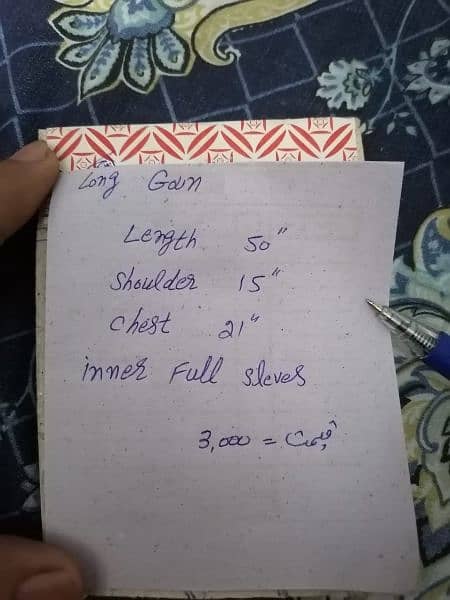 Long Goun
Length 50"
Shoulder 15"
Chest 21"
inner Full Sleves
3,000 = قیمت